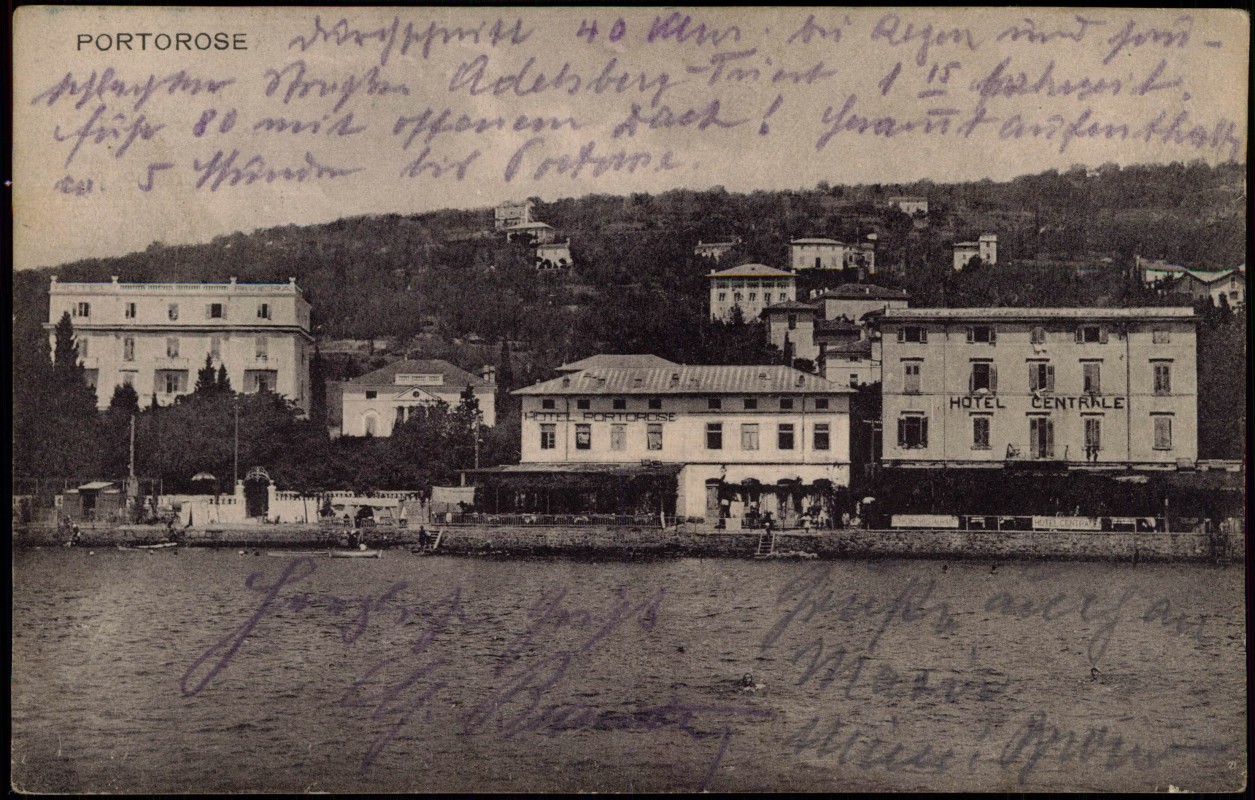 PORTOROSE
Durchschnitt 40 Klm. bei Regen und sau-
schlechter Straße Adelsberg-Triest 1 15 Fahrzeit.
80 mit offenem Dach! Gesamtaufenthalt
ca. 5 Stunden bis Portorose.
HOTEL PORTOROSE
HOTEL CENTRALE
HOTEL CENTRALE
Herzlichst grüßt
G.
Grüße auch an
Marie